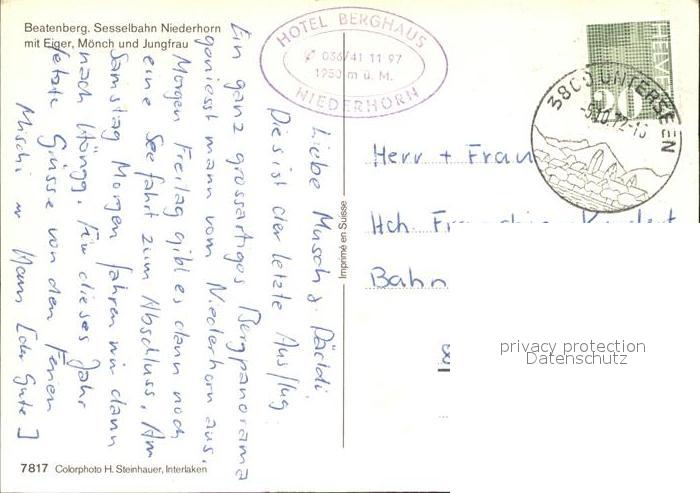 Beatenberg. Sesselbahn Niederhorn
mit Eiger, Mönch und Jungfrau
HOTEL BERGHAUS
036/41 11 97
1950 m ü. M.
NIEDERHORN
HELVETIA
20
3800 UNTERSEEN
Liebe Mutsch &
Dies ist der letzte Ausflug.
Ein ganz grossartiges Bergpanorama
geniesst mann vom Niederhorn aus.
Morgen Freitag gibt es dann noch
eine Seefahrt zum Abschluss. Am
Samstag Morgen fahren wir dann
nach Höngg. Für dieses Jahr
letzte Grüsse von den Ferien
Mann [der Gute]
Imprimé en Suisse
Herr + Frau
Hch.
Bahn
privacy protection
Datenschutz
7817 Colorphoto H. Steinhauer, Interlaken